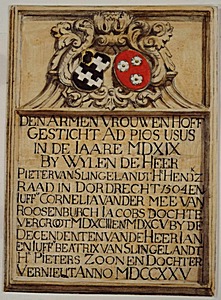 DEN ARMEN VROUWEN HOFF
GESTICHT AD PIOS USUS
IN DE IAARE MDXIX
BY WYLEN DE HEER
PIETER VAN SLINGELANDT Hr HENDZ
RAAD IN DORDRECHT 1504 EN
IUFFr CORNELIA VANDER MEE VAN
ROOSENBURCH IACOBS DOCHTER
VERGROT MDXCIII EN MDXCV BY DE
DECENDENTEN VAN DE HEER IAN
EN IUFFr BEATRIX VAN SLINGELANDT
Hr PIETERS ZOON EN DOCHTER
VERNIEUT ANNO MDCCXXV